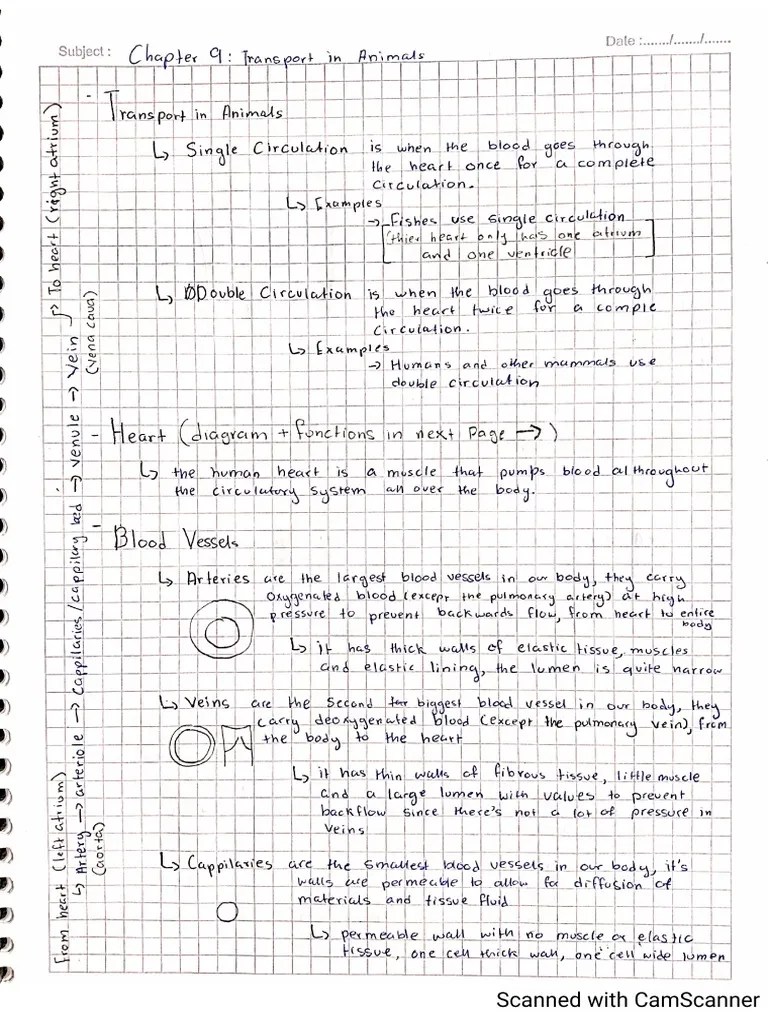 Subject : Chapter 9: Transport in Animals
Date :......./......./.......
- Transport in Animals
↳ Single Circulation is when the blood goes through
the heart once for a complete
circulation.
↳ Examples
→ Fishes use single circulation
[thier heart only has one atrium
and one ventricle]
↳ Double Circulation is when the blood goes through
the heart twice for a comple
circulation.
↳ Examples
→ Humans and other mammals use
double circulation
- Heart (diagram + functions in next page →)
↳ the human heart is a muscle that pumps blood althroughout
the circulatory system all over the body.
- Blood Vessels
↳ Arteries are the largest blood vessels in our body, they carry
oxygenated blood (except the pulmonary artery) at high
pressure to prevent backwards flow, from heart to entire
body
↳ it has thick walls of elastic tissue, muscles
and elastic lining, the lumen is quite narrow
↳ Veins are the second biggest blood vessel in our body, they
carry deoxygenated blood (except the pulmonary vein), from
the body to the heart
↳ it has thin walls of fibrous tissue, little muscle
and a large lumen with values to prevent
backflow since there's not a lot of pressure in
veins
↳ Cappilaries are the smallest blood vessels in our body, it's
walls are permeable to allow for diffusion of
materials and tissue fluid
↳ permeable wall with no muscle or elastic
tissue, one cell thick wall, one cell wide lumen
From heart (left atrium)
↳ Artery → arteriole → Cappilaries/cappilary bed → venule → Vein ↱ To heart (right atrium)
(aorta)
(vena cava)
Scanned with CamScanner